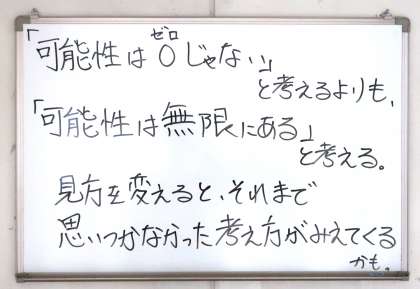 「可能性は0じゃない」
ゼロ
と考えるよりも、
「可能性は無限にある」
と考える。
見方を変えると、それまで
思いつかなかった考え方がみえてくる
かも。